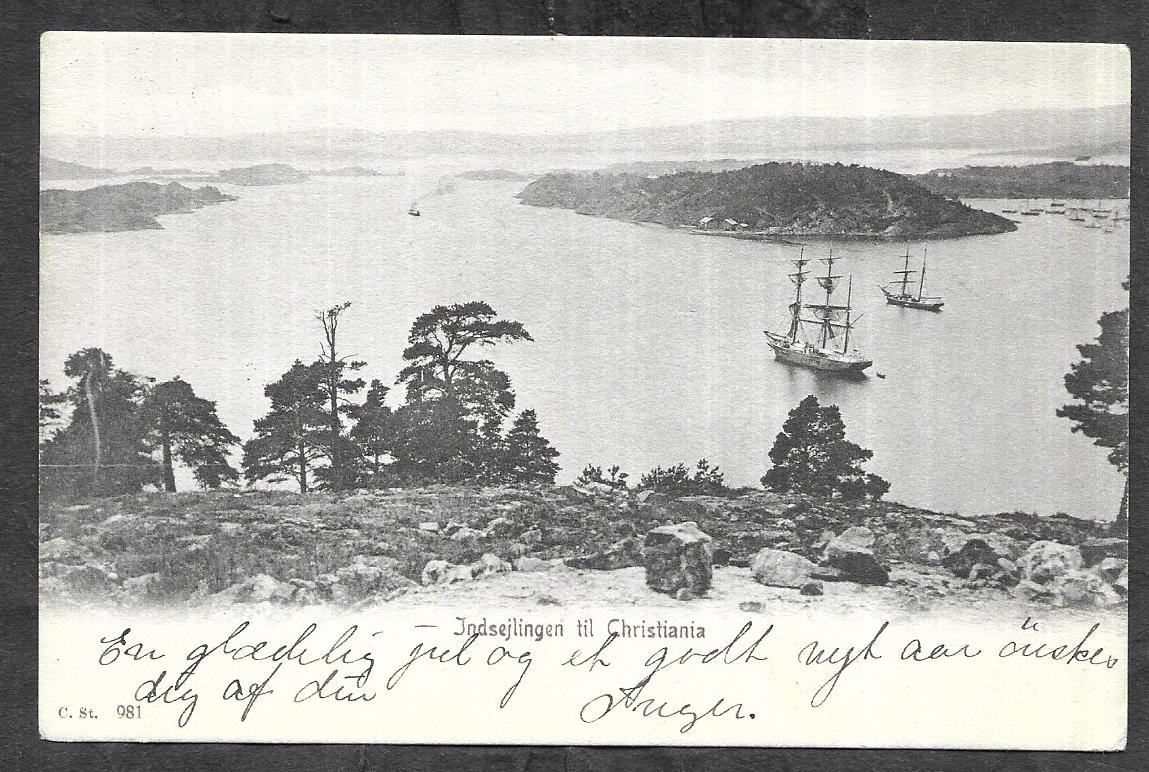 Indsejlingen til Christiania
En glædelig jul og et godt nyt aar önskes
dig af din
C. St. 981